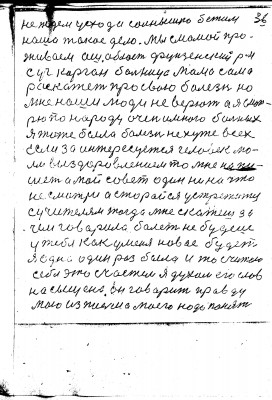 36
не ждем ухода солнышко бетим
наша такое дело. Мы смамой про-
живаем Ош. област фрунзенский р-н
с/с карган болница Мама сама
раскажет про свою болезн но
мне наши люди не верют а я смот-
рю по народу очен много болных
я тоже была болная нехуже всех
если за интересуется человек мо-
им выздоровлением то мне
шет а мой совет один ни на что
не смотри а старайся устретит
сучителям тогда мне скажеш за-
чем говарила болет не будеш
у тебя как уменя новае будет
я одно один раз была и то считаю
себя это счастем я духам его слов
насыщена. он говарит правду
мою из писма моего надо понят